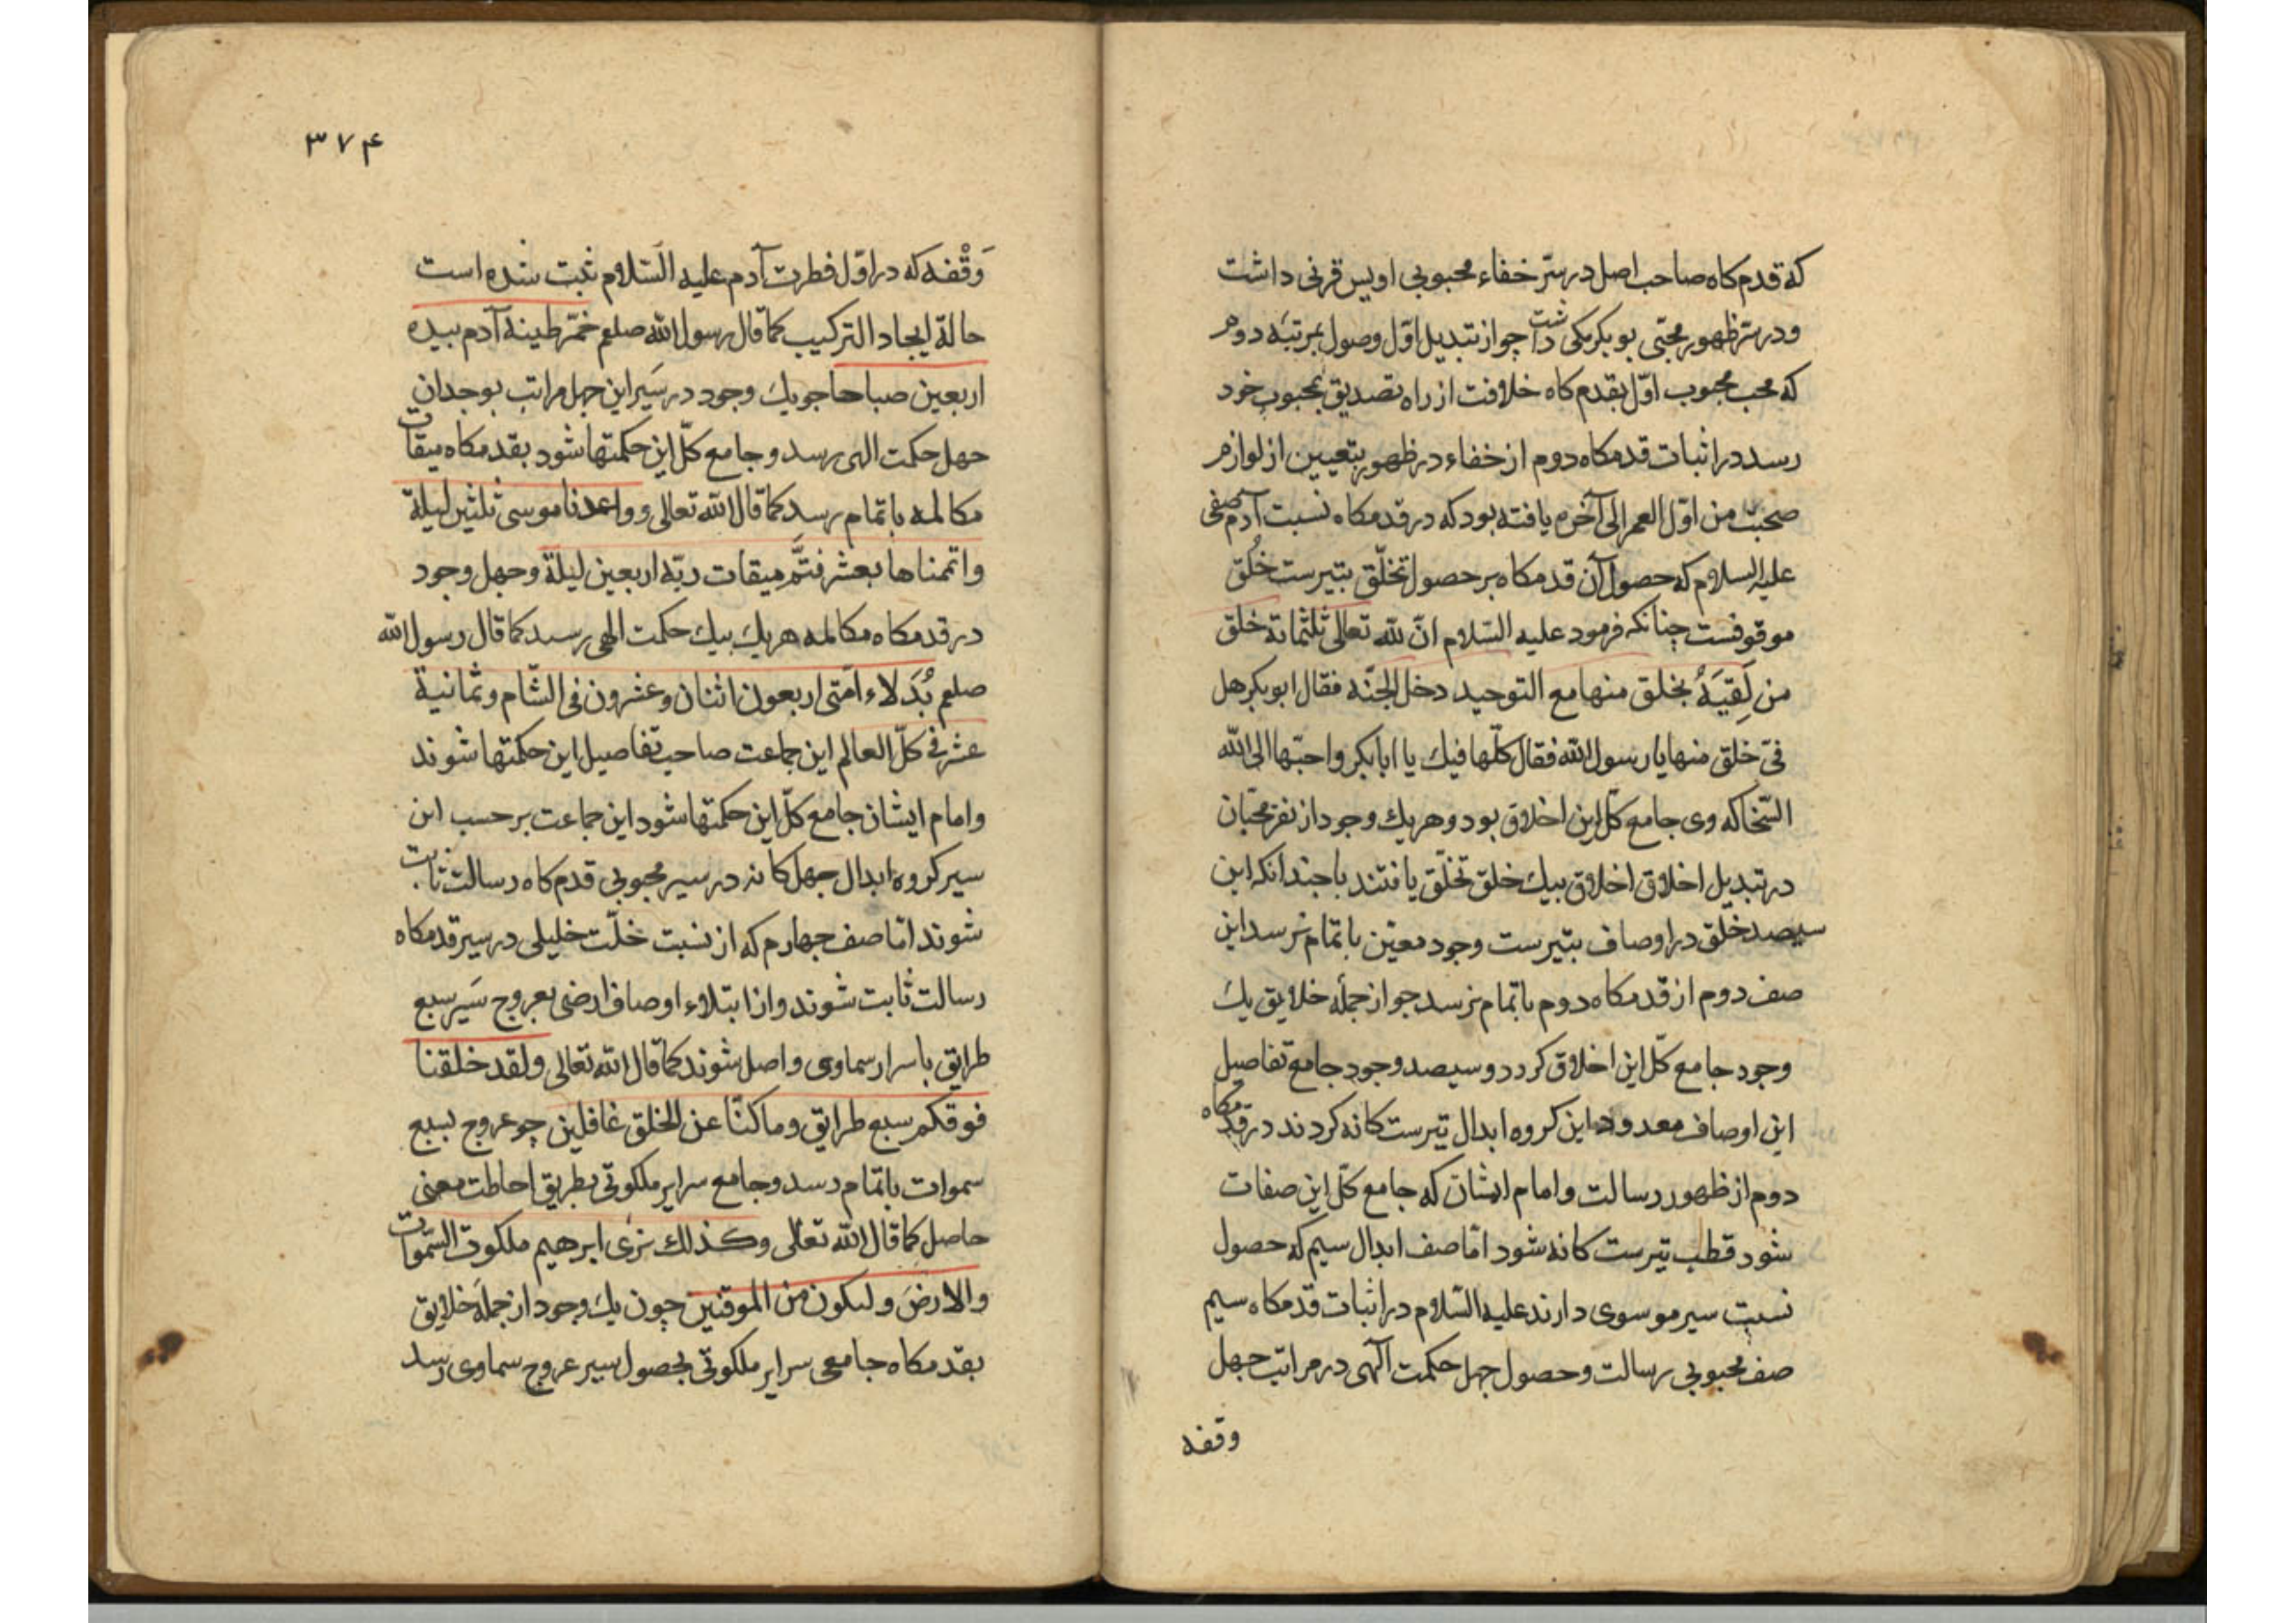 که قدم کاه صاحب اصل در ستر خفاء محبوبی اویس قرنی داشت
ودر ستر ظهور محبّی بو بکر مکی داشت چو از تبدیل اوّل وصول بمرتبه دوم
که محب محبوب اوّل بقدم کاه خلافت از راه تصدیق بمحبوب خود
رسد در اثبات قدمکاه دوم از خفاء در ظهور بتعیین از لوازم
صحبت من اوّل العمر الی آخره یافته بود که در قدمکاه نسبت آدم صفی
علیه السلام که حصول آن قدمکاه بر حصول تخلّق بتیرست خُلق
موقوفست چنانکه فرمود علیه السّلام انّ لله تعالی ثلثمائة خلق
من لَقِیَهُ بخلق منها مع التوحید دخل الجنّه فقال ابوبکر هل
فیّ خلق منها یا رسول الله فقال کلّها فیك یا ابابکر واحبّها الی الله
السّخا که وی جامع کلّ این اخلاق بود و هر یك وجود از نفر محبّان
در تبدیل اخلاق اخلاق بیك خلق تخلّق یافتند با چندانکه این
سیصد خلق در اوصاف بتیرست وجود معیّن باتمام نرسد این
صف دوم از قدمکاه دوم باتمام نرسد چو از جملهٔ خلایق یك
وجود جامع کلّ این اخلاق کردد و سیصد وجود جامع تفاصیل
این اوصاف معدود این کروه ابدال تیرست کانه کردند در قدمکاه
دوم از ظهور رسالت و امام ایشان که جامع کلّ این صفات
شود قطب تیرست کانه شود امّا صف ابدال سیم که حصول
نسبت سیر موسوی دارند علیه السّلام در اثبات قدمکاه سیم
صف محبوبی رسالت و حصول چهل حکمت آلهی در مراتب چهل
وقفه
۳۷۴
وَقْفه که در اوّل فطرت آدم علیه السّلام ثبت شده است
حالة ایجاد الترکیب کما قال رسول الله صلعم خمّر طینة آدم بیده
اربعین صباحا چو یك وجود در سَیر این چهل مراتب بوجدان
چهل حکمت الهی رسد و جامع کلّ این حکمتها شود بقدمکاه میقات
مکالمه باتمام رسد کما قال الله تعالی وواعدنا موسی ثلثین لیلة
واتممناها بعشر فتمَّ میقات ربّه اربعین لیلة و چهل وجود
در قدمکاه مکالمه هر یك بیك حکمت الهی رسد کما قال رسول الله
صلعم بُدَلاء امّتی اربعون اثنان وعشرون فی الشّام وثمانیة
عشر فی کلّ العالم این جماعت صاحب تفاصیل این حکمتها شوند
وامام ایشان جامع کلّ این حکمتها شود این جماعت بر حسب این
سیر کروه ابدال چهل کانه در سیر محبوبی قدم کاه رسالت ثابت
شوند امّا صف چهارم که از نسبت خلّت خلیلی در سیر قدمکاه
رسالت ثابت شوند و از ابتلاء اوصاف ارضی بعروج سَیر سبع
طرایق باسرار سماوی واصل شوند کما قال الله تعالی ولقد خلقنا
فوقکم سبع طرایق وما کنّا عن الخلق غافلین چو عروج بسبع
سموات باتمام رسد و جامع سرایر ملکوتی بطریق احاطت معنی
حاصل کما قال الله تعالی وکذلك نری ابرهیم ملکوت السّموات
والارضَ ولیکون من الموقنین چون یك وجود از جملهٔ خلایق
بقدمکاه جامعی سرایر ملکوتی بحصول سیر عروج سماوی رسد